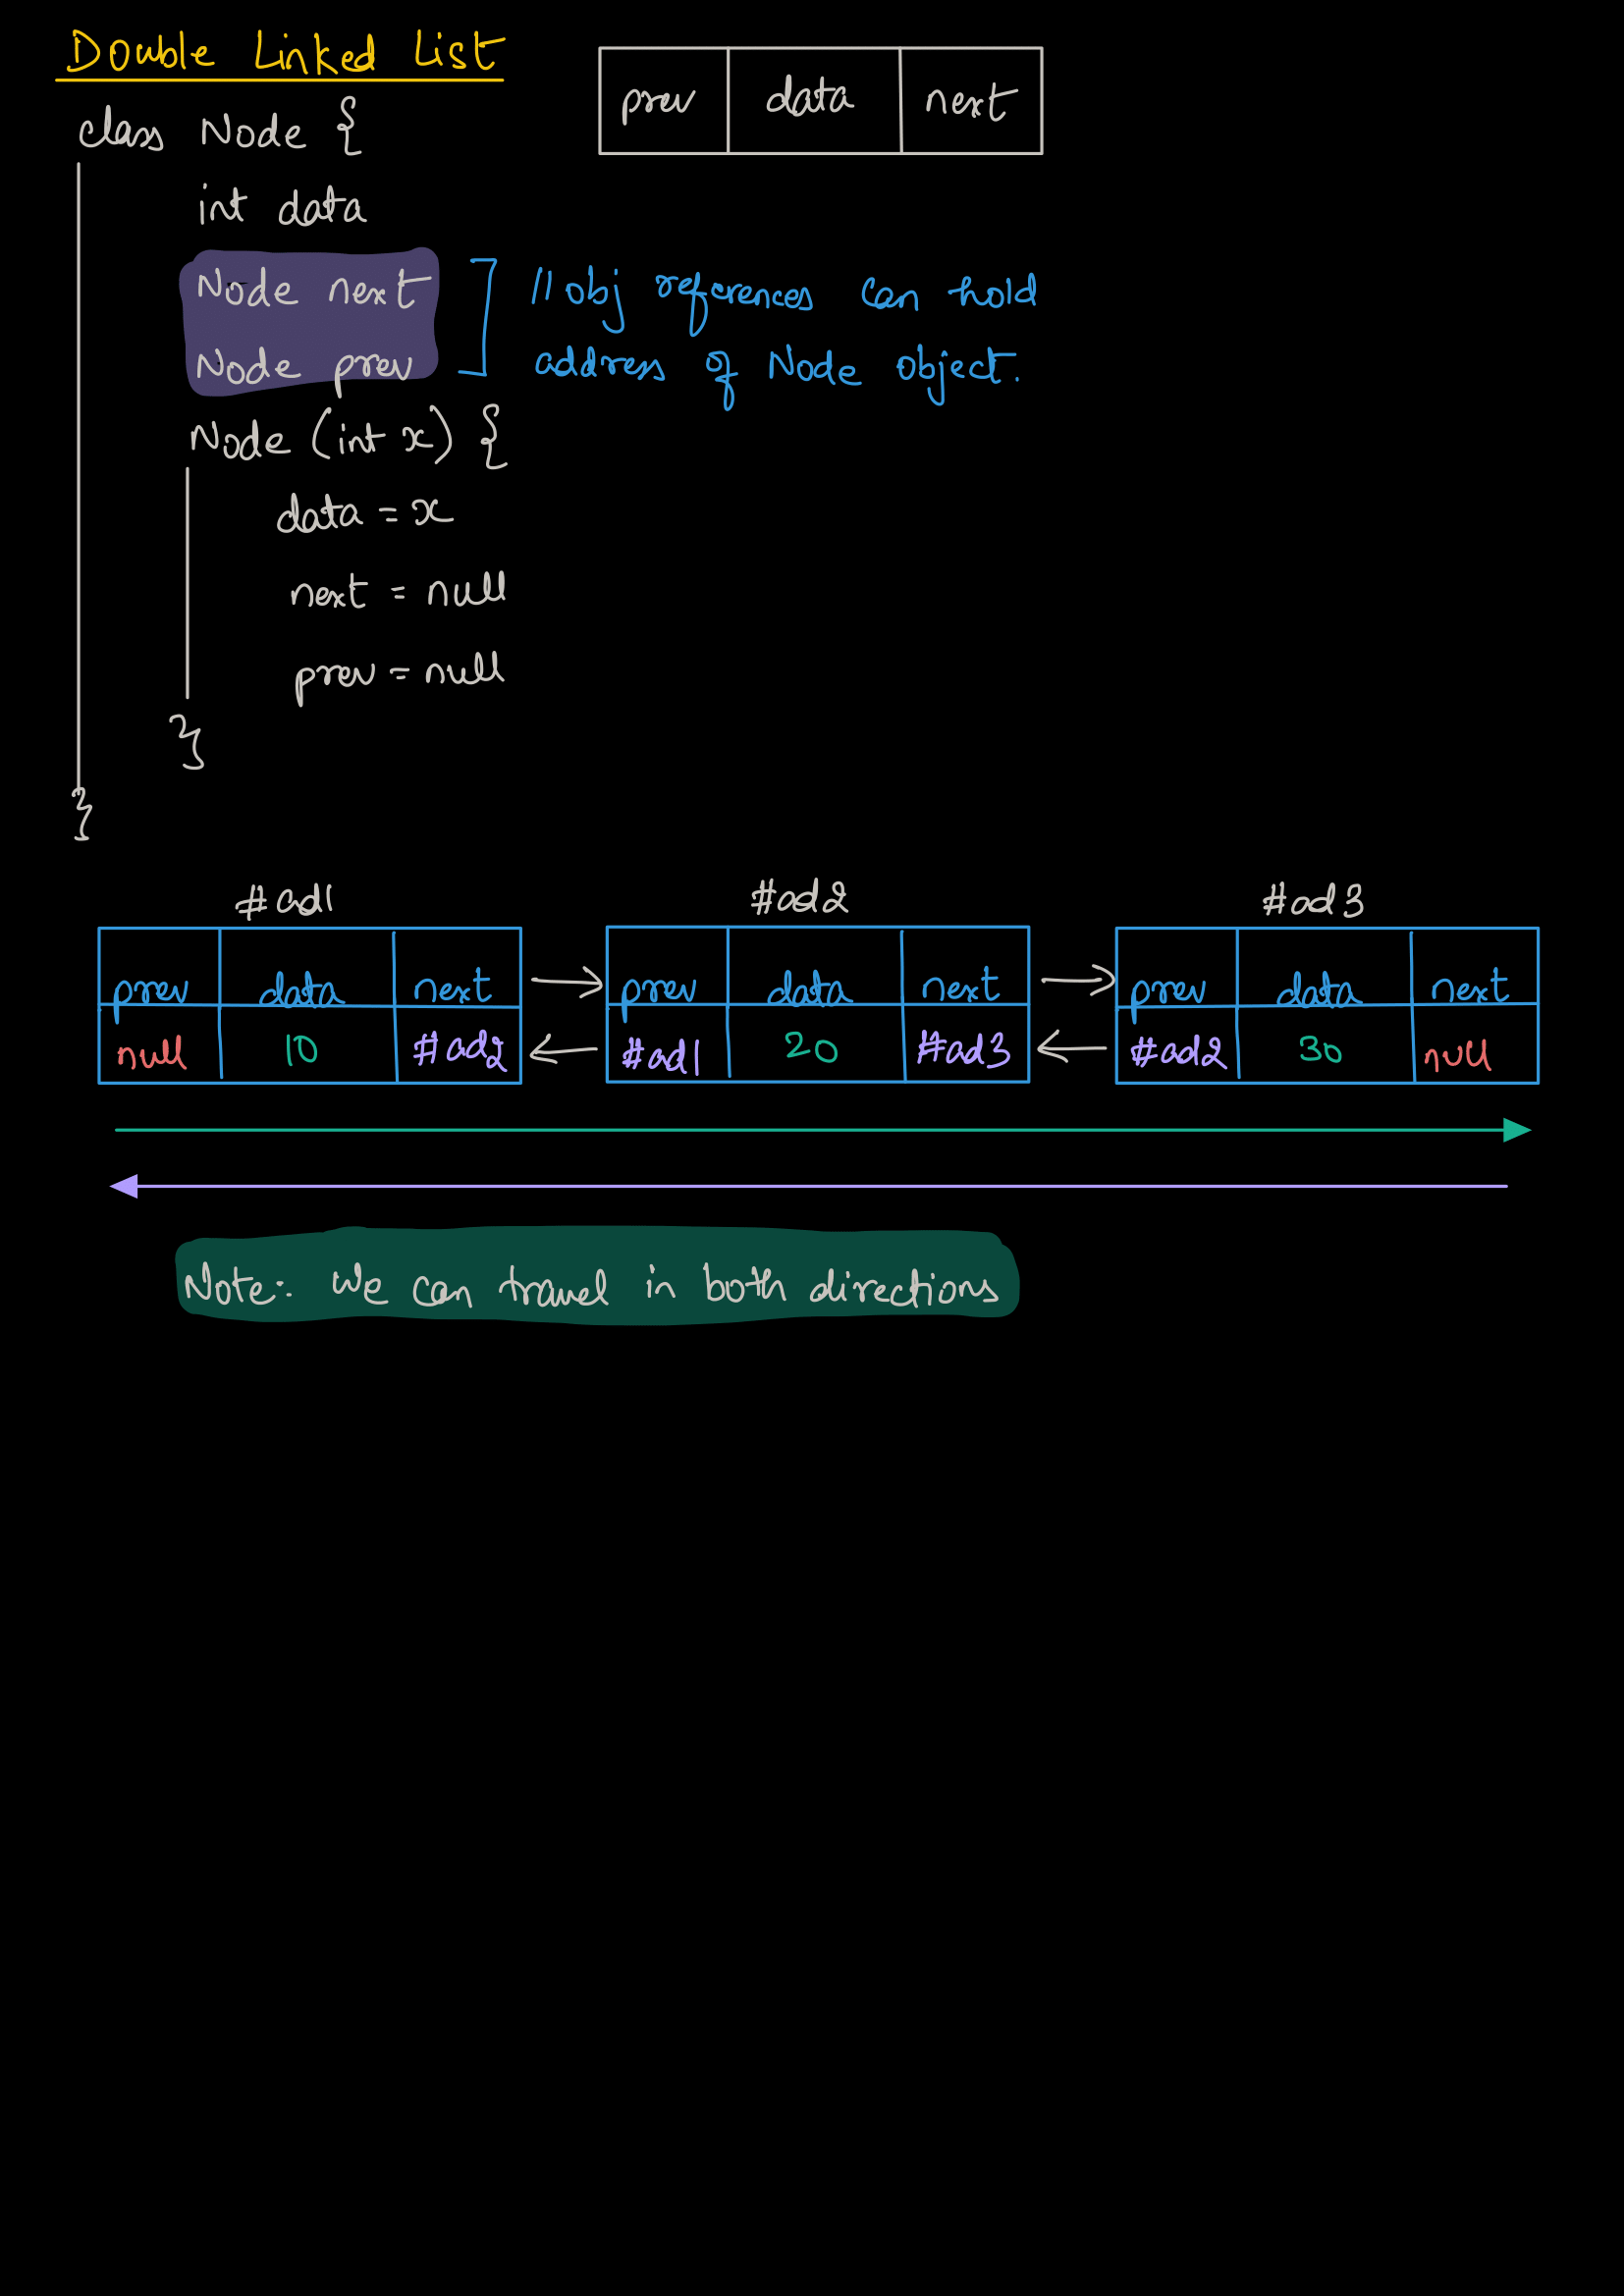 Double Linked List
prev data next
class Node {
int data
Node next
Node prev
// obj references can hold
address of Node object.
Node (int x) {
data = x
next = null
prev = null
}
}
#ad1 #ad2 #ad3
prev data next prev data next prev data next
null 10 #ad2 #ad1 20 #ad3 #ad2 30 null
Note:- We can travel in both directions